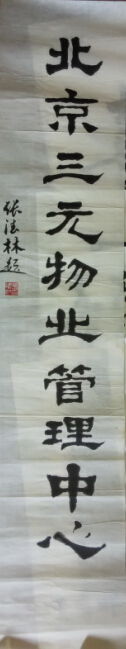 北京三元物业管理中心
张法林题